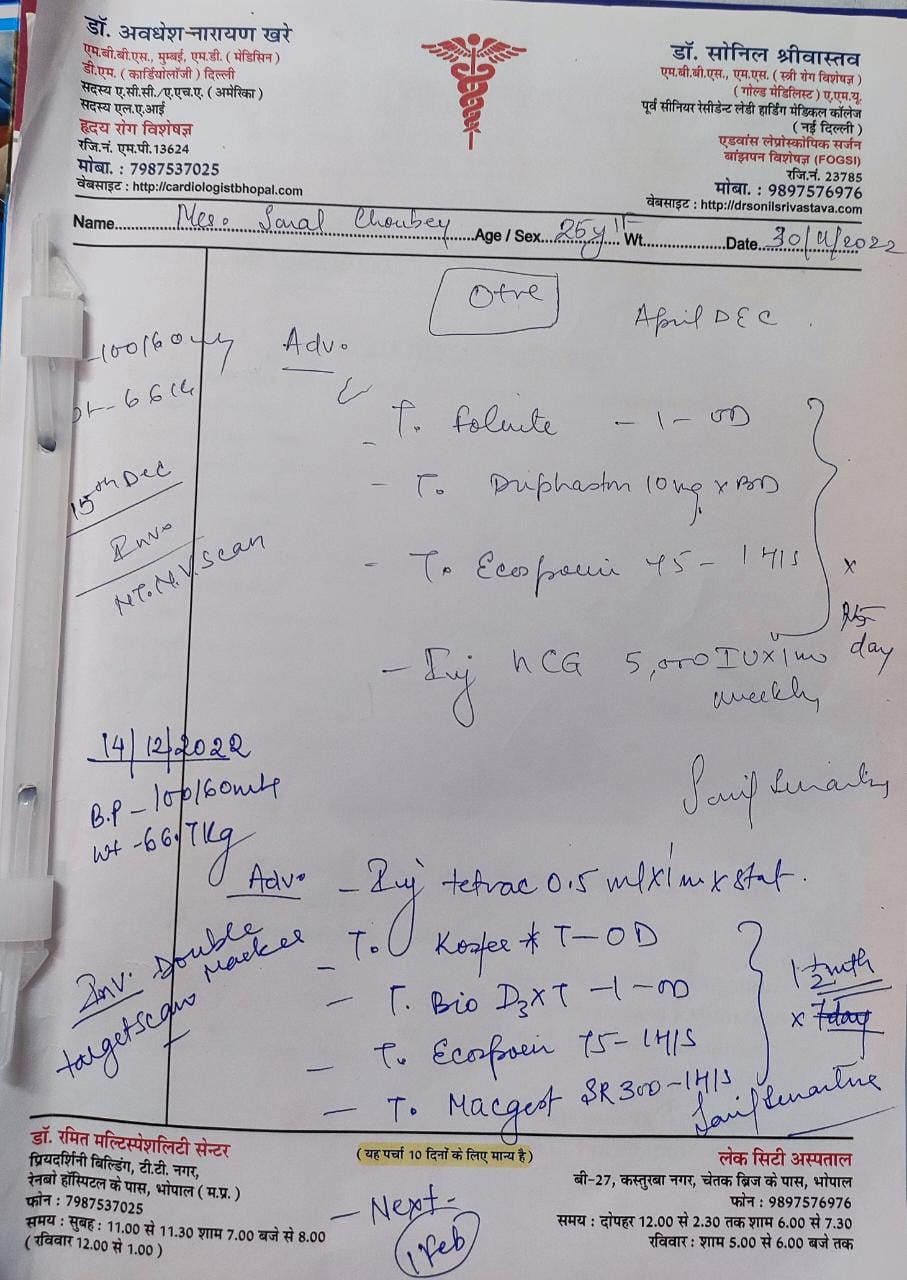 डॉ. अवधेश नारायण खरे
एम.बी.बी.एस., मुम्बई, एम.डी. ( मेडिसिन )
डी.एम. ( कार्डियोलॉजी ) दिल्ली
सदस्य ए.सी.सी./ए.एच.ए. ( अमेरिका )
सदस्य एल.ए.आई
हृदय रोग विशेषज्ञ
रजि.नं. एम.पी.13624
मोबा. : 7987537025
वेबसाइट : http://cardiologistbhopal.com
डॉ. सोनिल श्रीवास्तव
एम.बी.बी.एस., एम.एस. ( स्त्री रोग विशेषज्ञ )
( गोल्ड मेडिलिस्ट ) ए.एम.यू.
पूर्व सीनियर रेसीडेन्ट लेडी हार्डिंग मेडिकल कॉलेज
( नई दिल्ली )
एडवांस लेप्रोस्कोपिक सर्जन
बांझपन विशेषज्ञ (FOGSI)
रजि.नं. 23785
मोबा. : 9897576976
वेबसाइट : http://drsonilsrivastava.com
Name Mrs. Choubey Age / Sex 25y Wt. Date 30/11/2022
O+ve
April DEC
-100/60
Adv.
T. Folvite - 1 - OD
15th Dec
- T. Duphaston 10mg x BD
Inv.
NT.N.V. Scan
- T. Ecosprin 75 - 1 H/S
x
day
- Inj HCG 5,000 IU x 1m
weekly
14/12/2022
B.P - 100/60
Wt - 66.7 Kg
Adv. - Inj tetvac 0.5 ml x 1m x stat.
Inv. Double Marker
target scan
- T. T - OD
- T. Bio D3 x T - 1 - OD
1 1/2 mth
x 7day
- T. Ecosprin 75 - 1 H/S
- T. Macgest SR 300 - 1 H/S
डॉ. रमित मल्टिस्पेशलिटी सेन्टर
प्रियदर्शिनी बिल्डिंग, टी.टी. नगर,
रेनबो हॉस्पिटल के पास, भोपाल ( म.प्र. )
फोन : 7987537025
समय : सुबह : 11.00 से 11.30 शाम 7.00 बजे से 8.00
( रविवार 12.00 से 1.00 )
( यह पर्चा 10 दिनों के लिए मान्य है )
- Next -
1 Feb
लेक सिटी अस्पताल
बी-27, कस्तुरबा नगर, चेतक ब्रिज के पास, भोपाल
फोन : 9897576976
समय : दोपहर 12.00 से 2.30 तक शाम 6.00 से 7.30
रविवार : शाम 5.00 से 6.00 बजे तक